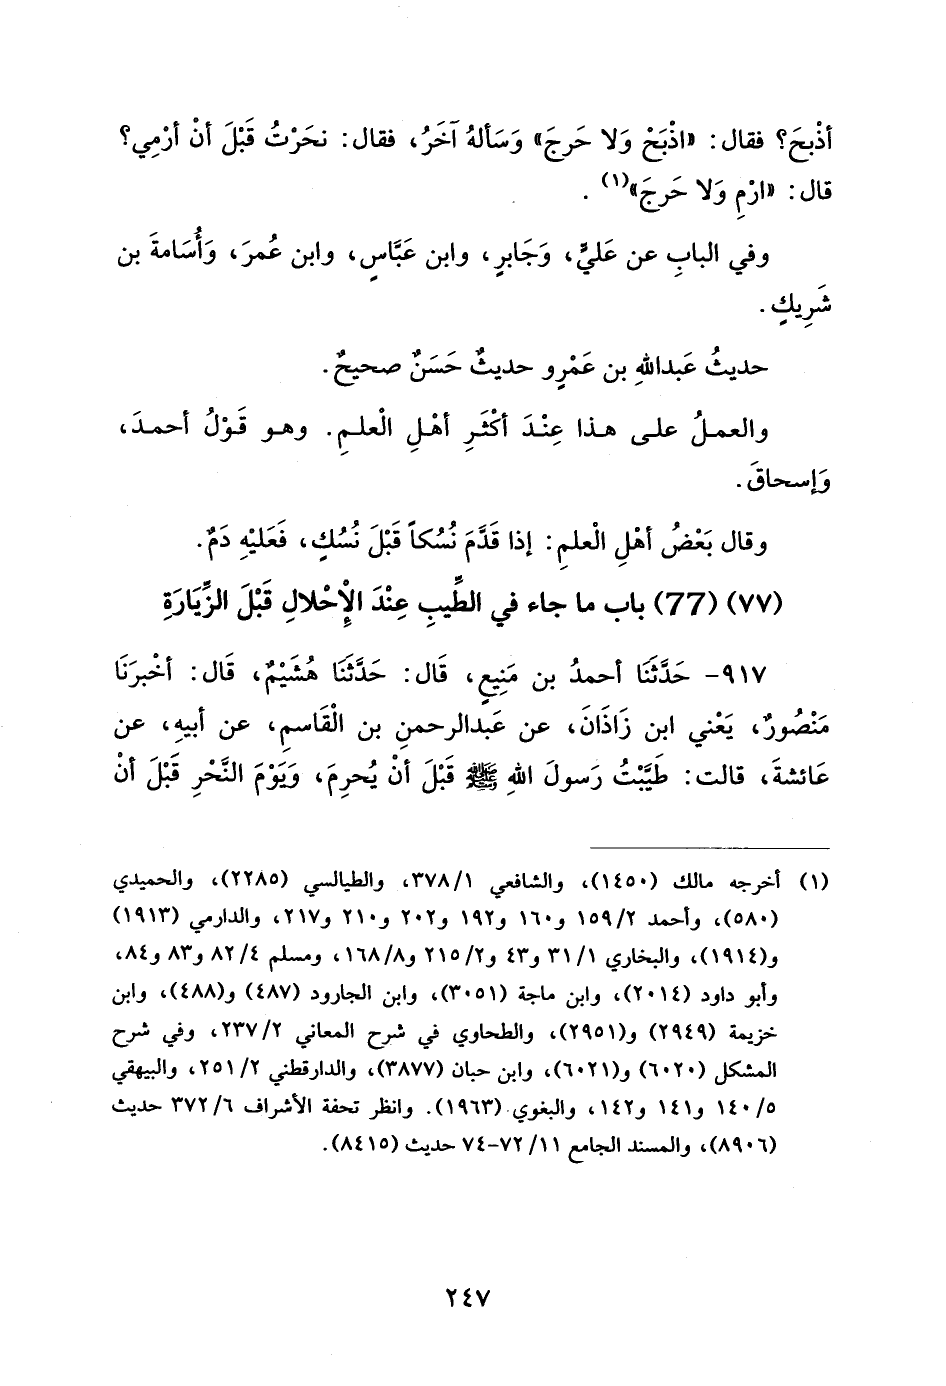 أذْبحَ؟ فقال: «اذْبَحْ وَلا حَرجَ» وَسَألهُ آخَرُ، فقال: نحَرْتُ قَبْلَ أنْ أرْمِي؟
قال: «ارْمِ وَلا حَرجَ»(١) .
وفي البابِ عن عَليٍّ، وَجَابرٍ، وابن عَبَّاسٍ، وابن عُمرَ، وَأُسَامةَ بن
شَرِيكٍ.
حديثُ عَبداللهِ بن عَمْرٍو حديثٌ حَسَنٌ صحيحٌ.
والعملُ على هذا عِنْدَ أكْثَرِ أهْلِ الْعلمِ. وهو قَوْلُ أحمدَ،
وَإسحاقَ.
وقال بَعْضُ أهْلِ الْعلمِ: إذا قَدَّمَ نُسُكاً قَبْلَ نُسُكٍ، فَعَليْهِ دَمٌ.
(٧٧) (77) باب ما جاء في الطِّيبِ عِنْدَ الْإحْلالِ قَبْلَ الزِّيَارَةِ
٩١٧- حَدَّثَنَا أحمدُ بن مَنِيعٍ، قَال: حَدَّثَنَا هُشَيْمٌ، قَال: أخْبرَنَا
مَنْصُورٌ، يَعْني ابن زَاذَانَ، عن عَبدالرحمنِ بن الْقَاسمِ، عن أبيهِ، عن
عَائشةَ، قالت: طَيَّبْتُ رَسولَ اللهِ ﷺ قَبْلَ أنْ يُحرِمَ، وَيَوْمَ النَّحْرِ قَبْلَ أنْ
(١) أخرجه مالك (١٤٥٠)، والشافعي ٣٧٨/١، والطيالسي (٢٢٨٥)، والحميدي
(٥٨٠)، وأحمد ١٥٩/٢ و١٦٠ و١٩٢ و٢٠٢ و٢١٠ و٢١٧، والدارمي (١٩١٣)
و(١٩١٤)، والبخاري ٣١/١ و٤٣ و٢١٥/٢ و١٦٨/٨، ومسلم ٨٢/٤ و٨٣ و٨٤،
وأبو داود (٢٠١٤)، وابن ماجة (٣٠٥١)، وابن الجارود (٤٨٧) و(٤٨٨)، وابن
خزيمة (٢٩٤٩) و(٢٩٥١)، والطحاوي في شرح المعاني ٢٣٧/٢، وفي شرح
المشكل (٦٠٢٠) و(٦٠٢١)، وابن حبان (٣٨٧٧)، والدارقطني ٢٥١/٢، والبيهقي
١٤٠/٥ و١٤١ و١٤٢، والبغوي (١٩٦٣). وانظر تحفة الأشراف ٣٧٢/٦ حديث
(٨٩٠٦)، والمسند الجامع ٧٢/١١-٧٤ حديث (٨٤١٥).
٢٤٧